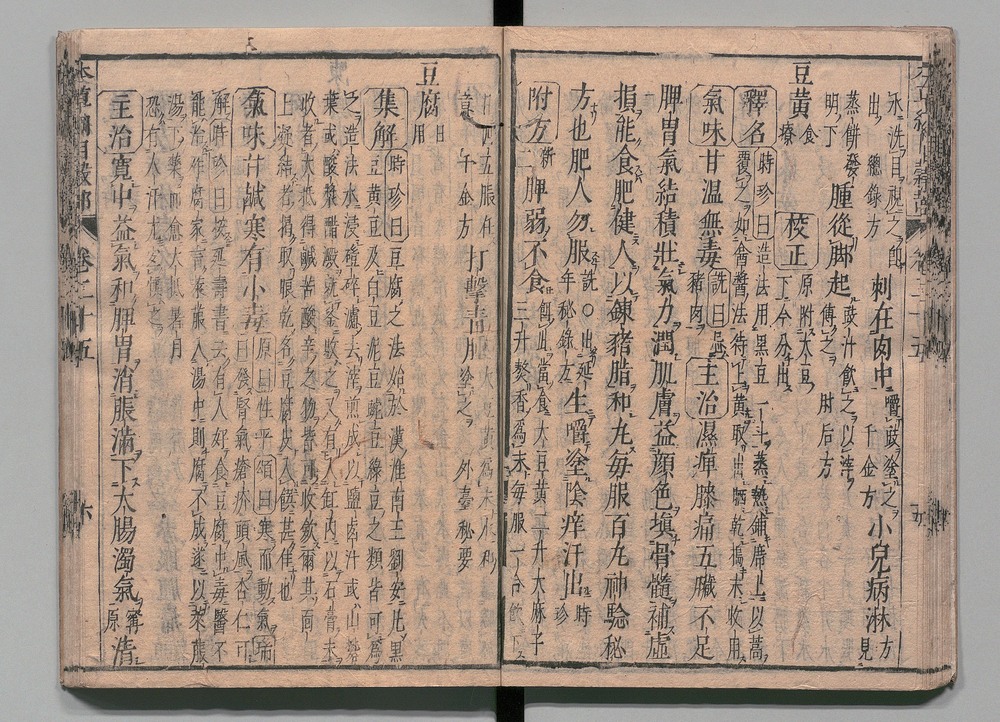 水洗目視之即
出 總錄方
刺在肉中
嚼豉塗之
千金方
小兒病淋
方見
蒸餅發
明下
腫從脚起
豉汁飲之以滓
傅之 肘后方
豆黃
食療
校正
原附大豆
下今分出
釋名
時珍曰造法用黑豆一斗蒸熟鋪席上以蒿
覆之如盦醬法待上黃取出晒乾搗末收用
氣味甘溫無毒
詵曰忌
豬肉
主治濕痺膝痛五臟不足
脾胃氣結積壯氣力潤肌膚益顏色填骨髓補虛
損能食肥健人以鍊豬脂和丸每服百丸神驗秘
方也肥人勿服
詵○出延
年秘錄方
生嚼塗陰痒汗出
時珍
附方
新二
脾弱不食
餌此當食大豆黃二升大麻子
三升熬香為末每服一合飲下
日四五服任
意 千金方
打擊青腫
大豆黃為末水和
塗之 外臺秘要
豆腐
日用
集解
時珍曰豆腐之法始於漢淮南王劉安凡黑
豆黃豆及白豆泥豆豌豆綠豆之類皆可為
之造法水浸磑碎濾去滓煎成以鹽鹵汁或山礬
葉或酸漿醋澱就釜收之又有入缸內以石膏末
收者大抵得鹹苦酸辛之物皆可收斂爾其面
上凝結者揭取眼乾名豆腐皮入饌甚佳也
氣味甘鹹寒有小毒
原曰性平頌曰寒而動氣瑞
曰發腎氣瘡疥頭風杏仁可
解時珍曰按延壽書云有人好食豆腐中毒醫不
能治作腐家言萊菔入湯中則腐不成遂以萊菔
湯下藥而愈大抵暑月
恐有人汗尤宜慎之
主治寬中益氣和脾胃消脹滿下大腸濁氣
寧原
清
卷二十五
六